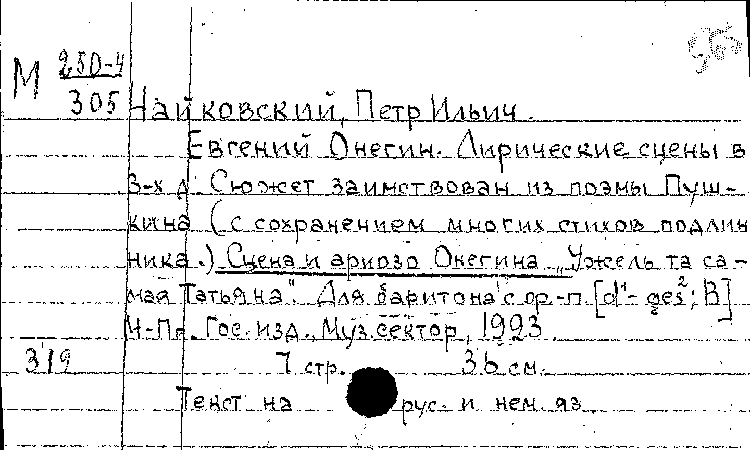 М 250-4
305 Чайковский, Петр Ильич.
Евгений Онегин. Лирические сцены в
3-х д. Сюжет заимствован из поэмы Пуш-
кина (с сохранением многих стихов подлин
ника.) Сцена и ариозо Онегина „Ужель та са-
мая Татьяна". Для баритона с ф.-п.
М-Пг. Гос. изд., Муз. сектор, 1923.
319 7 стр. 36 см.
Текст на рус. и нем. яз.